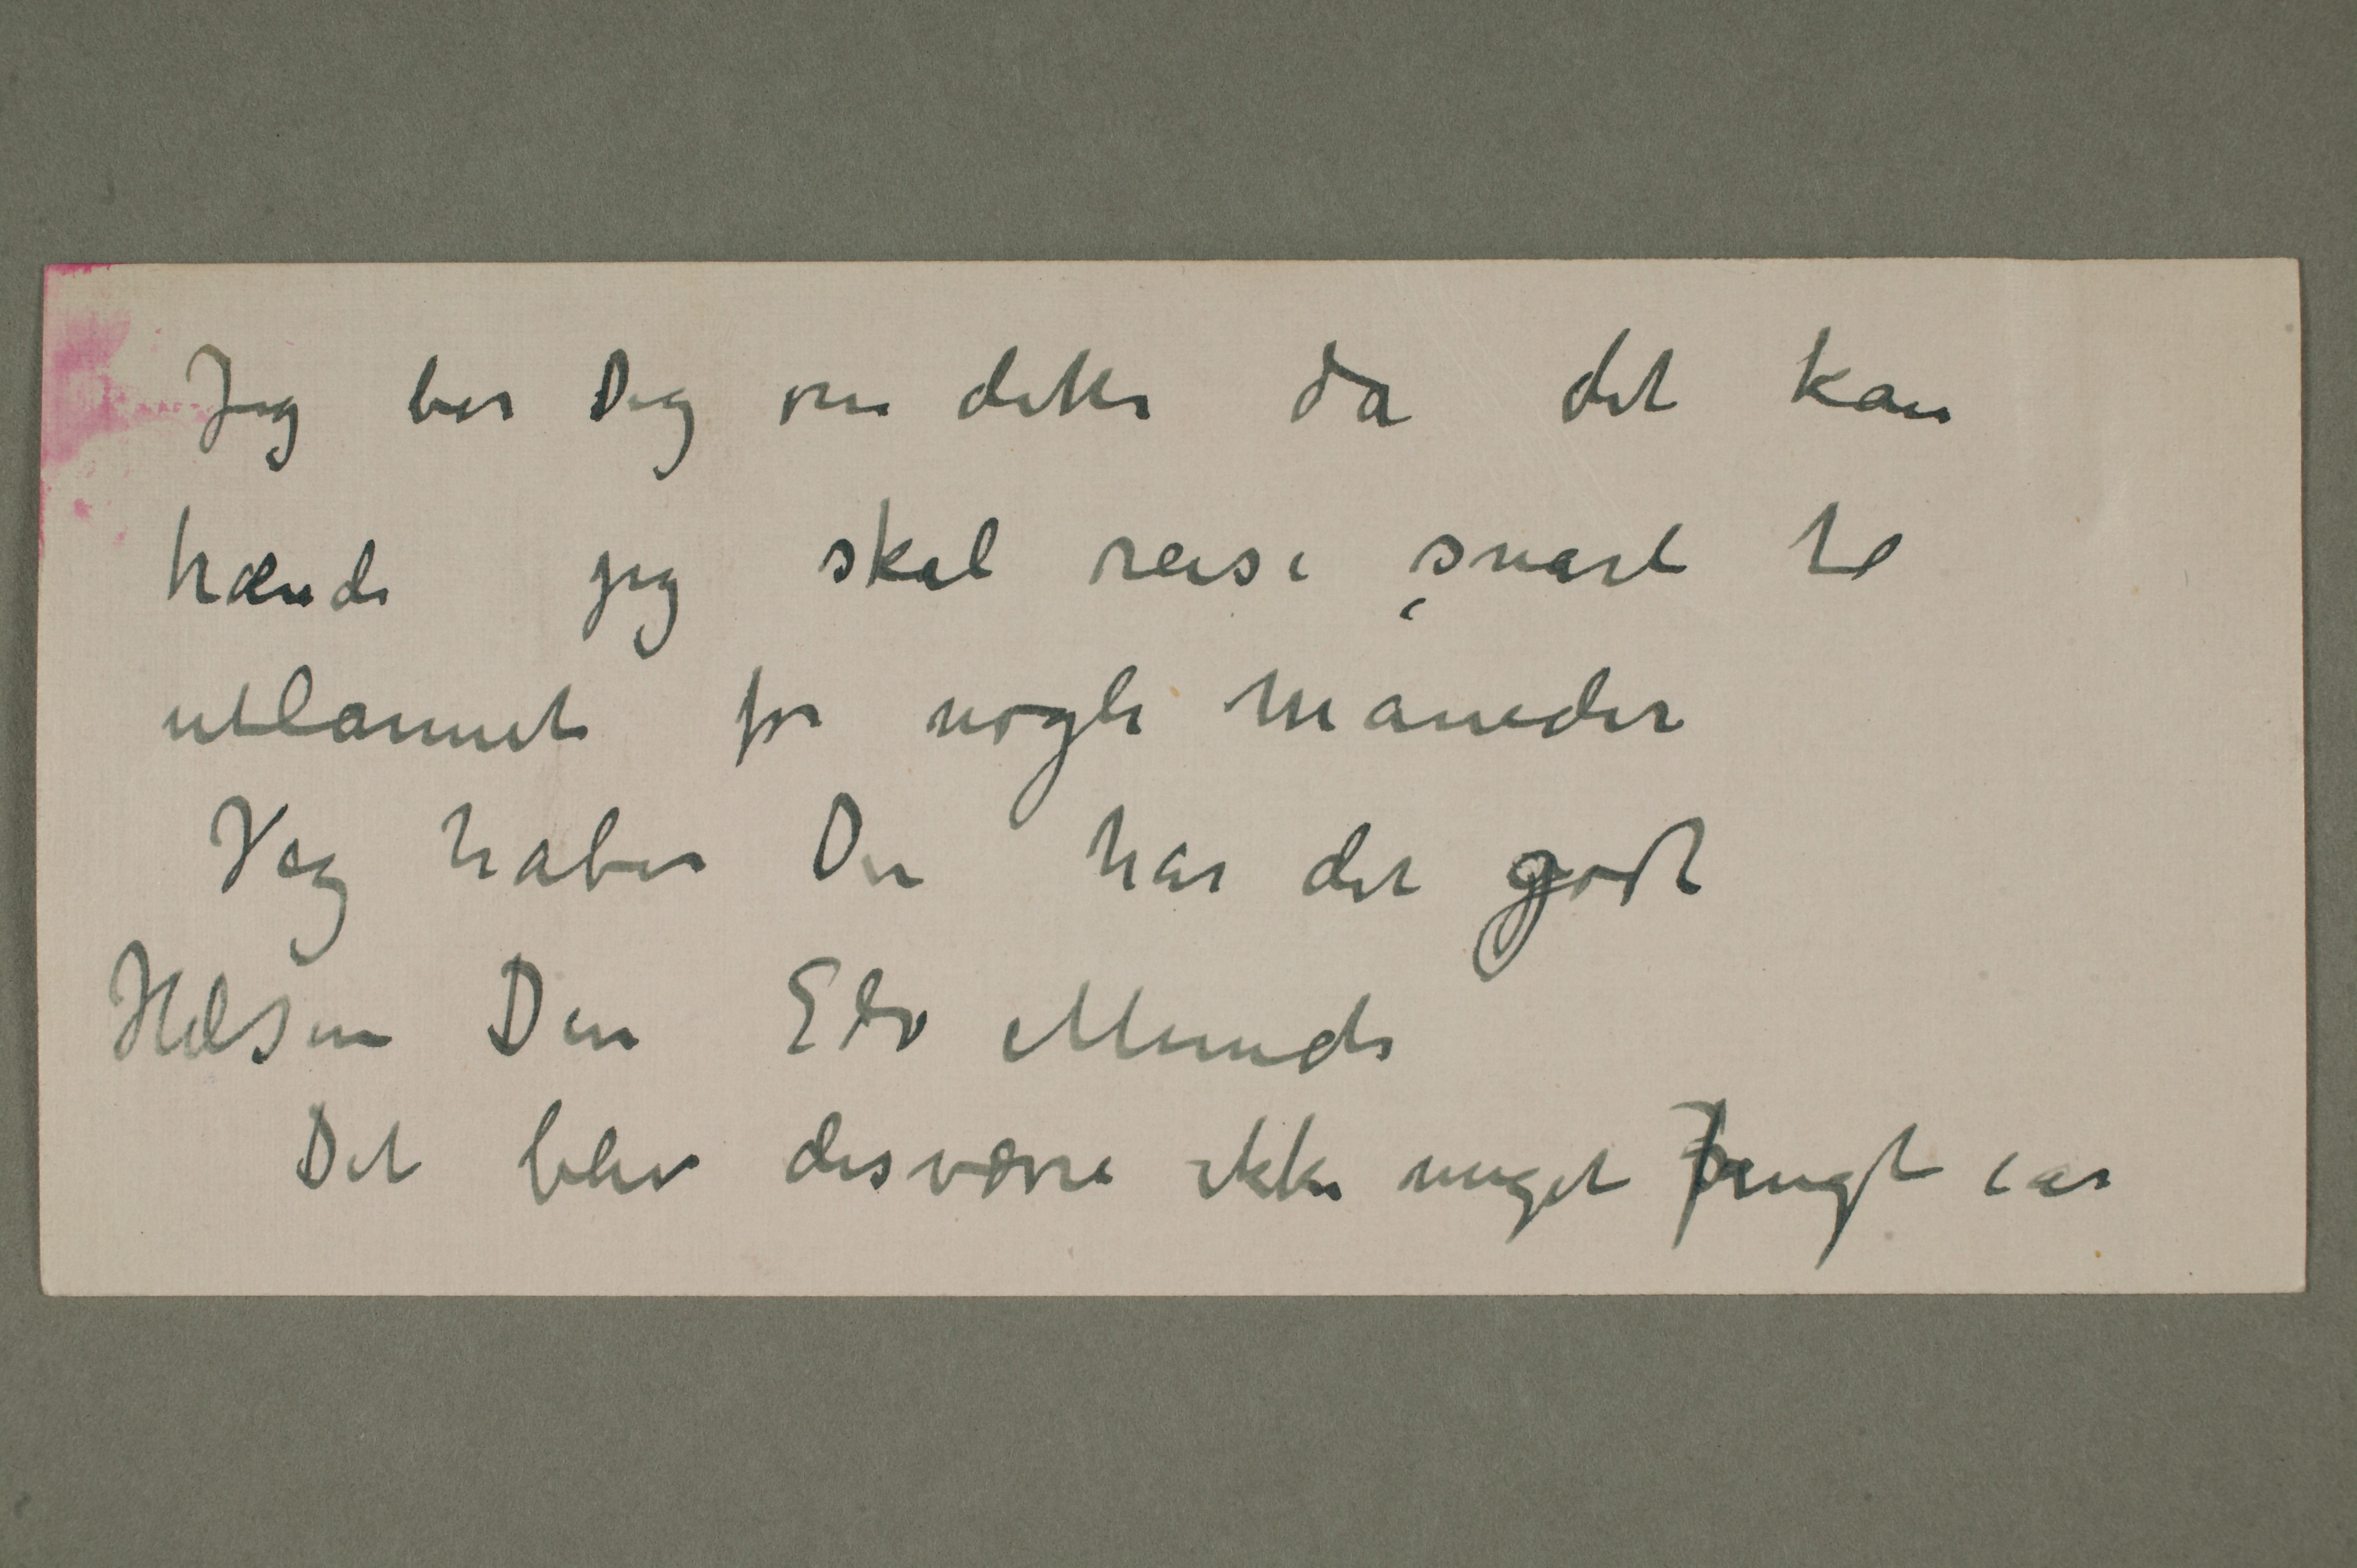 Jeg ber Dig om dette da det kan
hænde jeg skal reise snart til
utlannet for nogle Maneder
Jeg haber Du har det godt
Hilsen Din Edv Munch
Det blev desværre ikke meget frugt iar